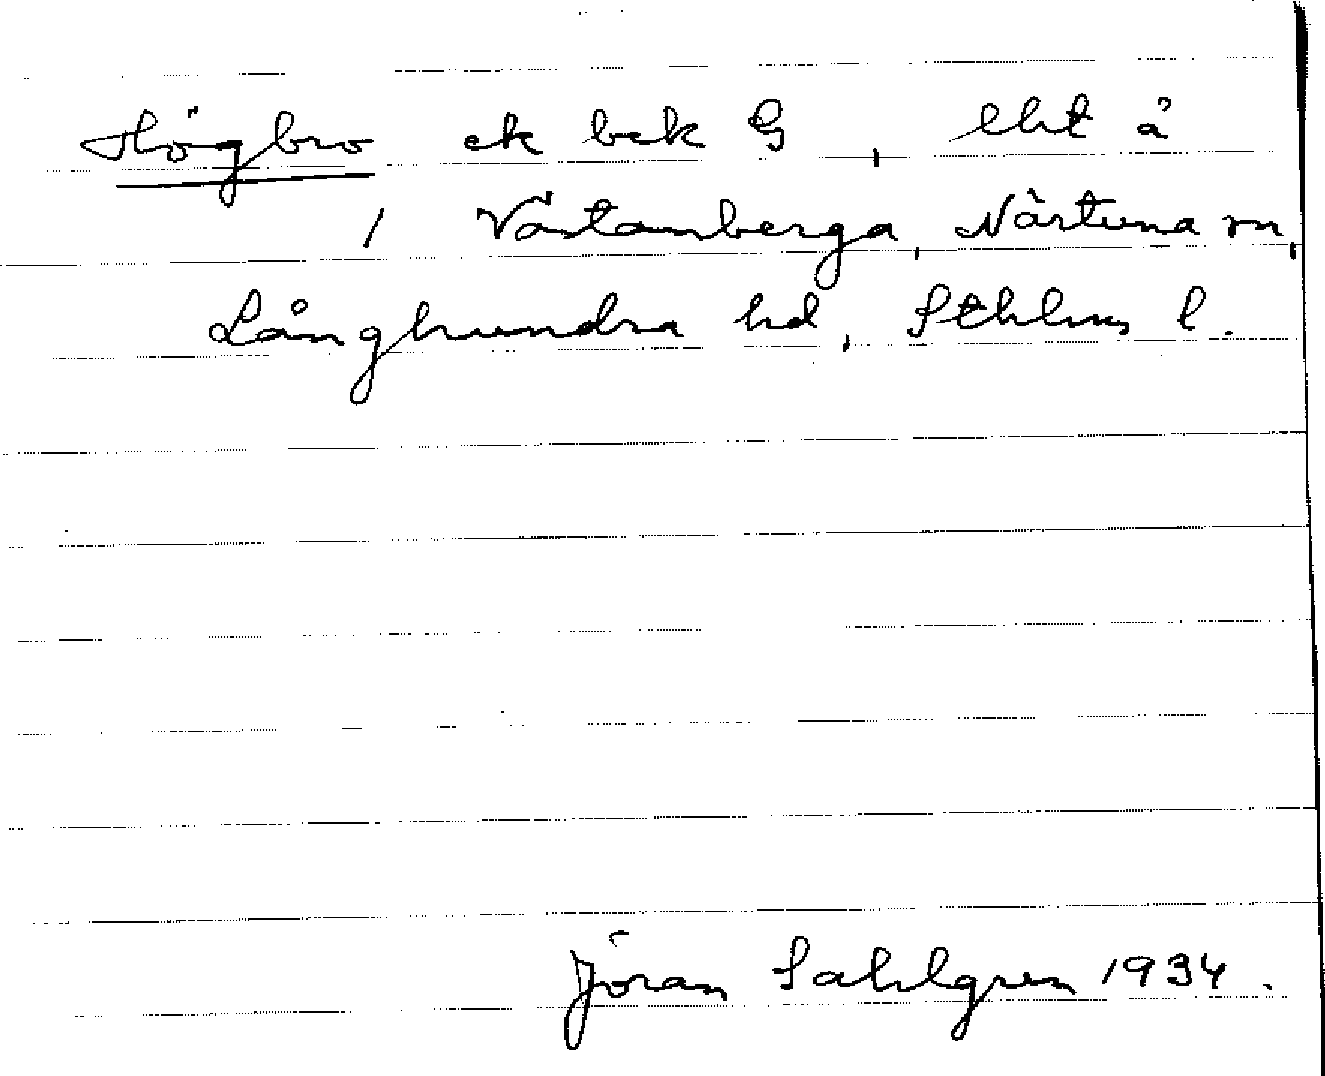 Högbro ek bek G, lht å
1 Västanberga, Närtuna sn,
Långhundra hd, Sthlms l.
Jöran Sahlgren 1934.